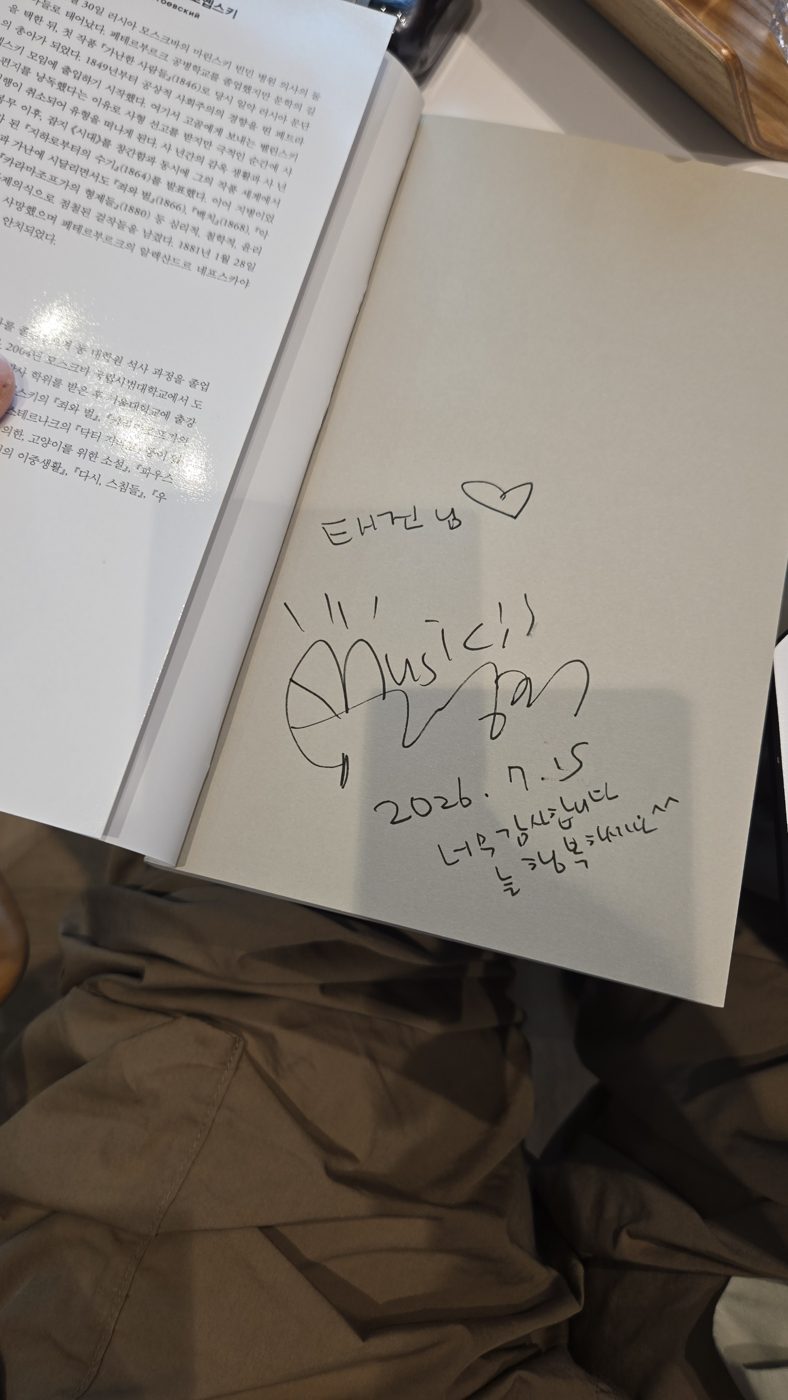 스토옙스키
30일 러시아 모스크바의 마린스키 빈민 병원 의사의 둘
들로 태어났다. 페테르부르크 공병학교를 졸업했지만 문학의 길
을 택한 뒤, 첫 작품 『가난한 사람들』(1846)로 당시 일약 러시아 문단
의 총아가 되었다. 1849년부터 공상적 사회주의의 경향을 띤 페트라
스키 모임에 출입하기 시작했다. 여기서 고골에게 보내는 벨린스키
편지를 낭독했다는 이유로 사형 선고를 받지만 극적인 순간에 사
행이 취소되어 유형을 떠나게 된다. 사 년간의 감옥 생활과 사 년
부무 이후, 잡지 《시대》를 창간함과 동시에 그의 작품 세계에서
가 된 『지하로부터의 수기』(1864)를 발표했다. 이어 지병이었
과 가난에 시달리면서도 『죄와 벌』(1866), 『백치』(1868), 『악
『카라마조프가의 형제들』(1880) 등 심리적, 철학적, 윤리
제의식으로 점철된 걸작들을 남겼다. 1881년 1월 28일
사망했으며 페테르부르크의 알렉산드르 네프스카야
안치되었다.
동 대학원 석사 과정을 졸업
모스크바 국립사범대학교에서 도
학위를 받은 후 서울대학교에 출강
스키의 『죄와 벌』,
스테르나크의 『닥터
의한, 고양이를 위한 소설』, 『파우스
의 이중생활』, 『다시, 스침들』, 『우
태진님
Music
2026. 7. 15
너무 감사합니다
늘 행복하세요^^